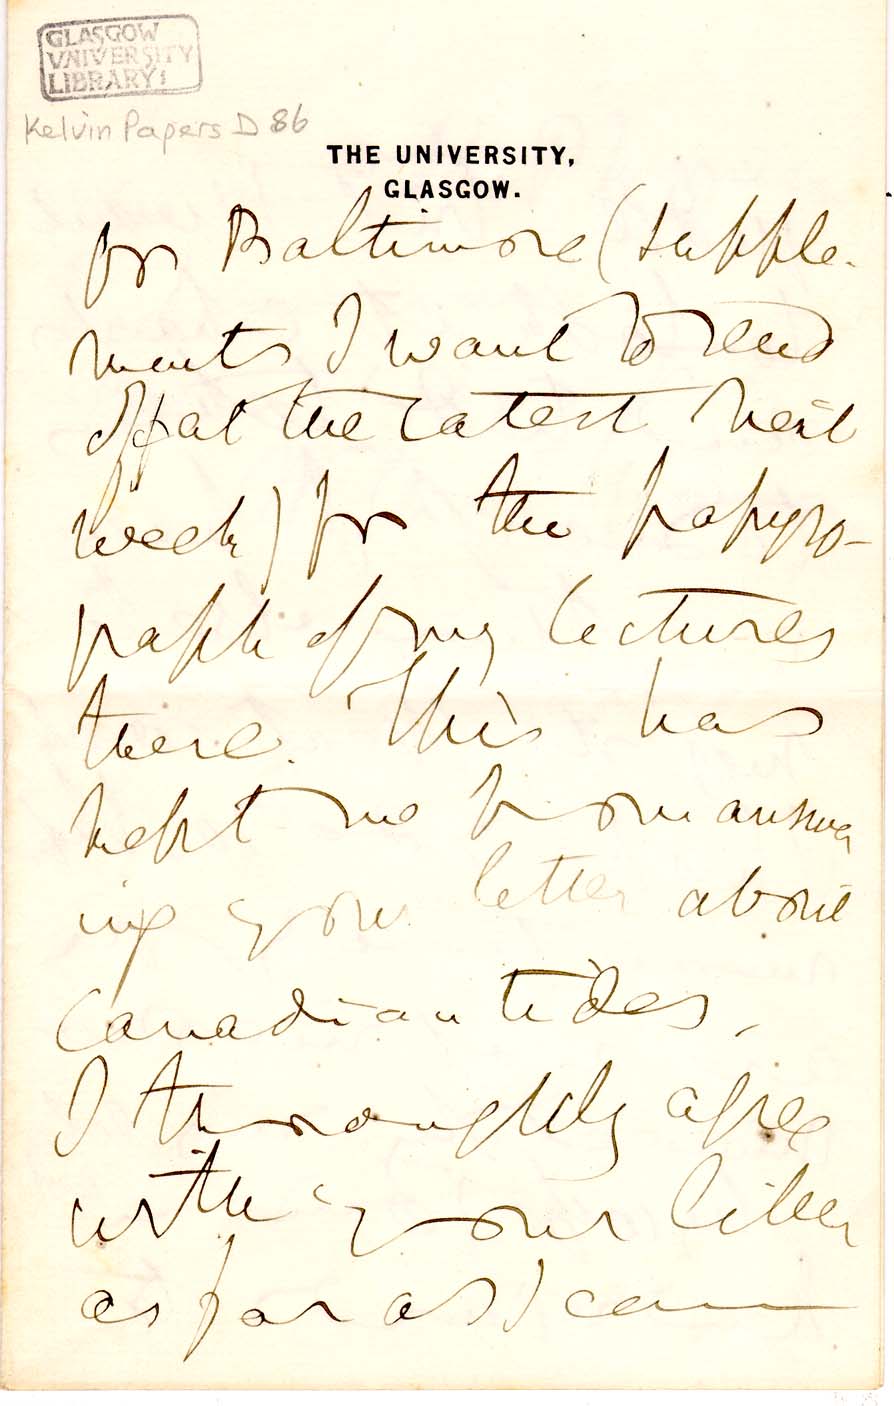 GLASGOW
UNIVERSITY
LIBRARY
Kelvin Papers D 86
THE UNIVERSITY,
GLASGOW.
for Baltimore (supple-
ments I want to send
off at the latest next
week) for the papyro-
graph of my lectures
there. This has
kept me from answer
ing your letter about
Canadian tides.
I thoroughly agree
with your letter
as far as I can